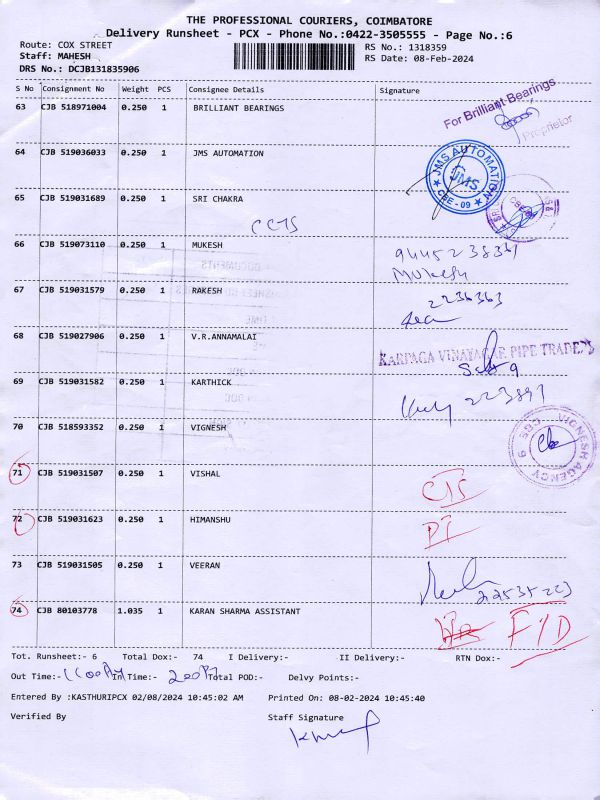 THE PROFESSIONAL COURIERS, COIMBATORE
Delivery Runsheet - PCX - Phone No.:0422-3505555 - Page No.:6
Route: COX STREET
RS No.: 1318359
Staff: MAHESH
RS Date: 08-Feb-2024
DRS No.: DCJB131835906
S No Consignment No Weight PCS Consignee Details Signature
63 CJB 518971004 0.250 1 BRILLIANT BEARINGS
For Brilliant Bearings
Proprietor
64 CJB 519036033 0.250 1 JMS AUTOMATION
JMS AUTOMATION
JMS
CBE - 09
65 CJB 519031689 0.250 1 SRI CHAKRA
CBE
66 CJB 519073110 0.250 1 MUKESH
Mukesh
67 CJB 519031579 0.250 1 RAKESH
2236363
68 CJB 519027906 0.250 1 V.R.ANNAMALAI
KARPAGA VINAYAGAR PIPE TRADERS
69 CJB 519031582 0.250 1 KARTHICK
223891
70 CJB 518593352 0.250 1 VIGNESH
VIGNESH AGENCY
71 CJB 519031507 0.250 1 VISHAL
CTS
72 CJB 519031623 0.250 1 HIMANSHU
73 CJB 519031505 0.250 1 VEERAN
74 CJB 80103778 1.035 1 KARAN SHARMA ASSISTANT
Tot. Runsheet:- 6 Total Dox:- 74 I Delivery:- II Delivery:- RTN Dox:-
Out Time:- In Time:- Total POD:- Delvy Points:-
Entered By :KASTHURIPCX 02/08/2024 10:45:02 AM Printed On: 08-02-2024 10:45:40
Verified By Staff Signature